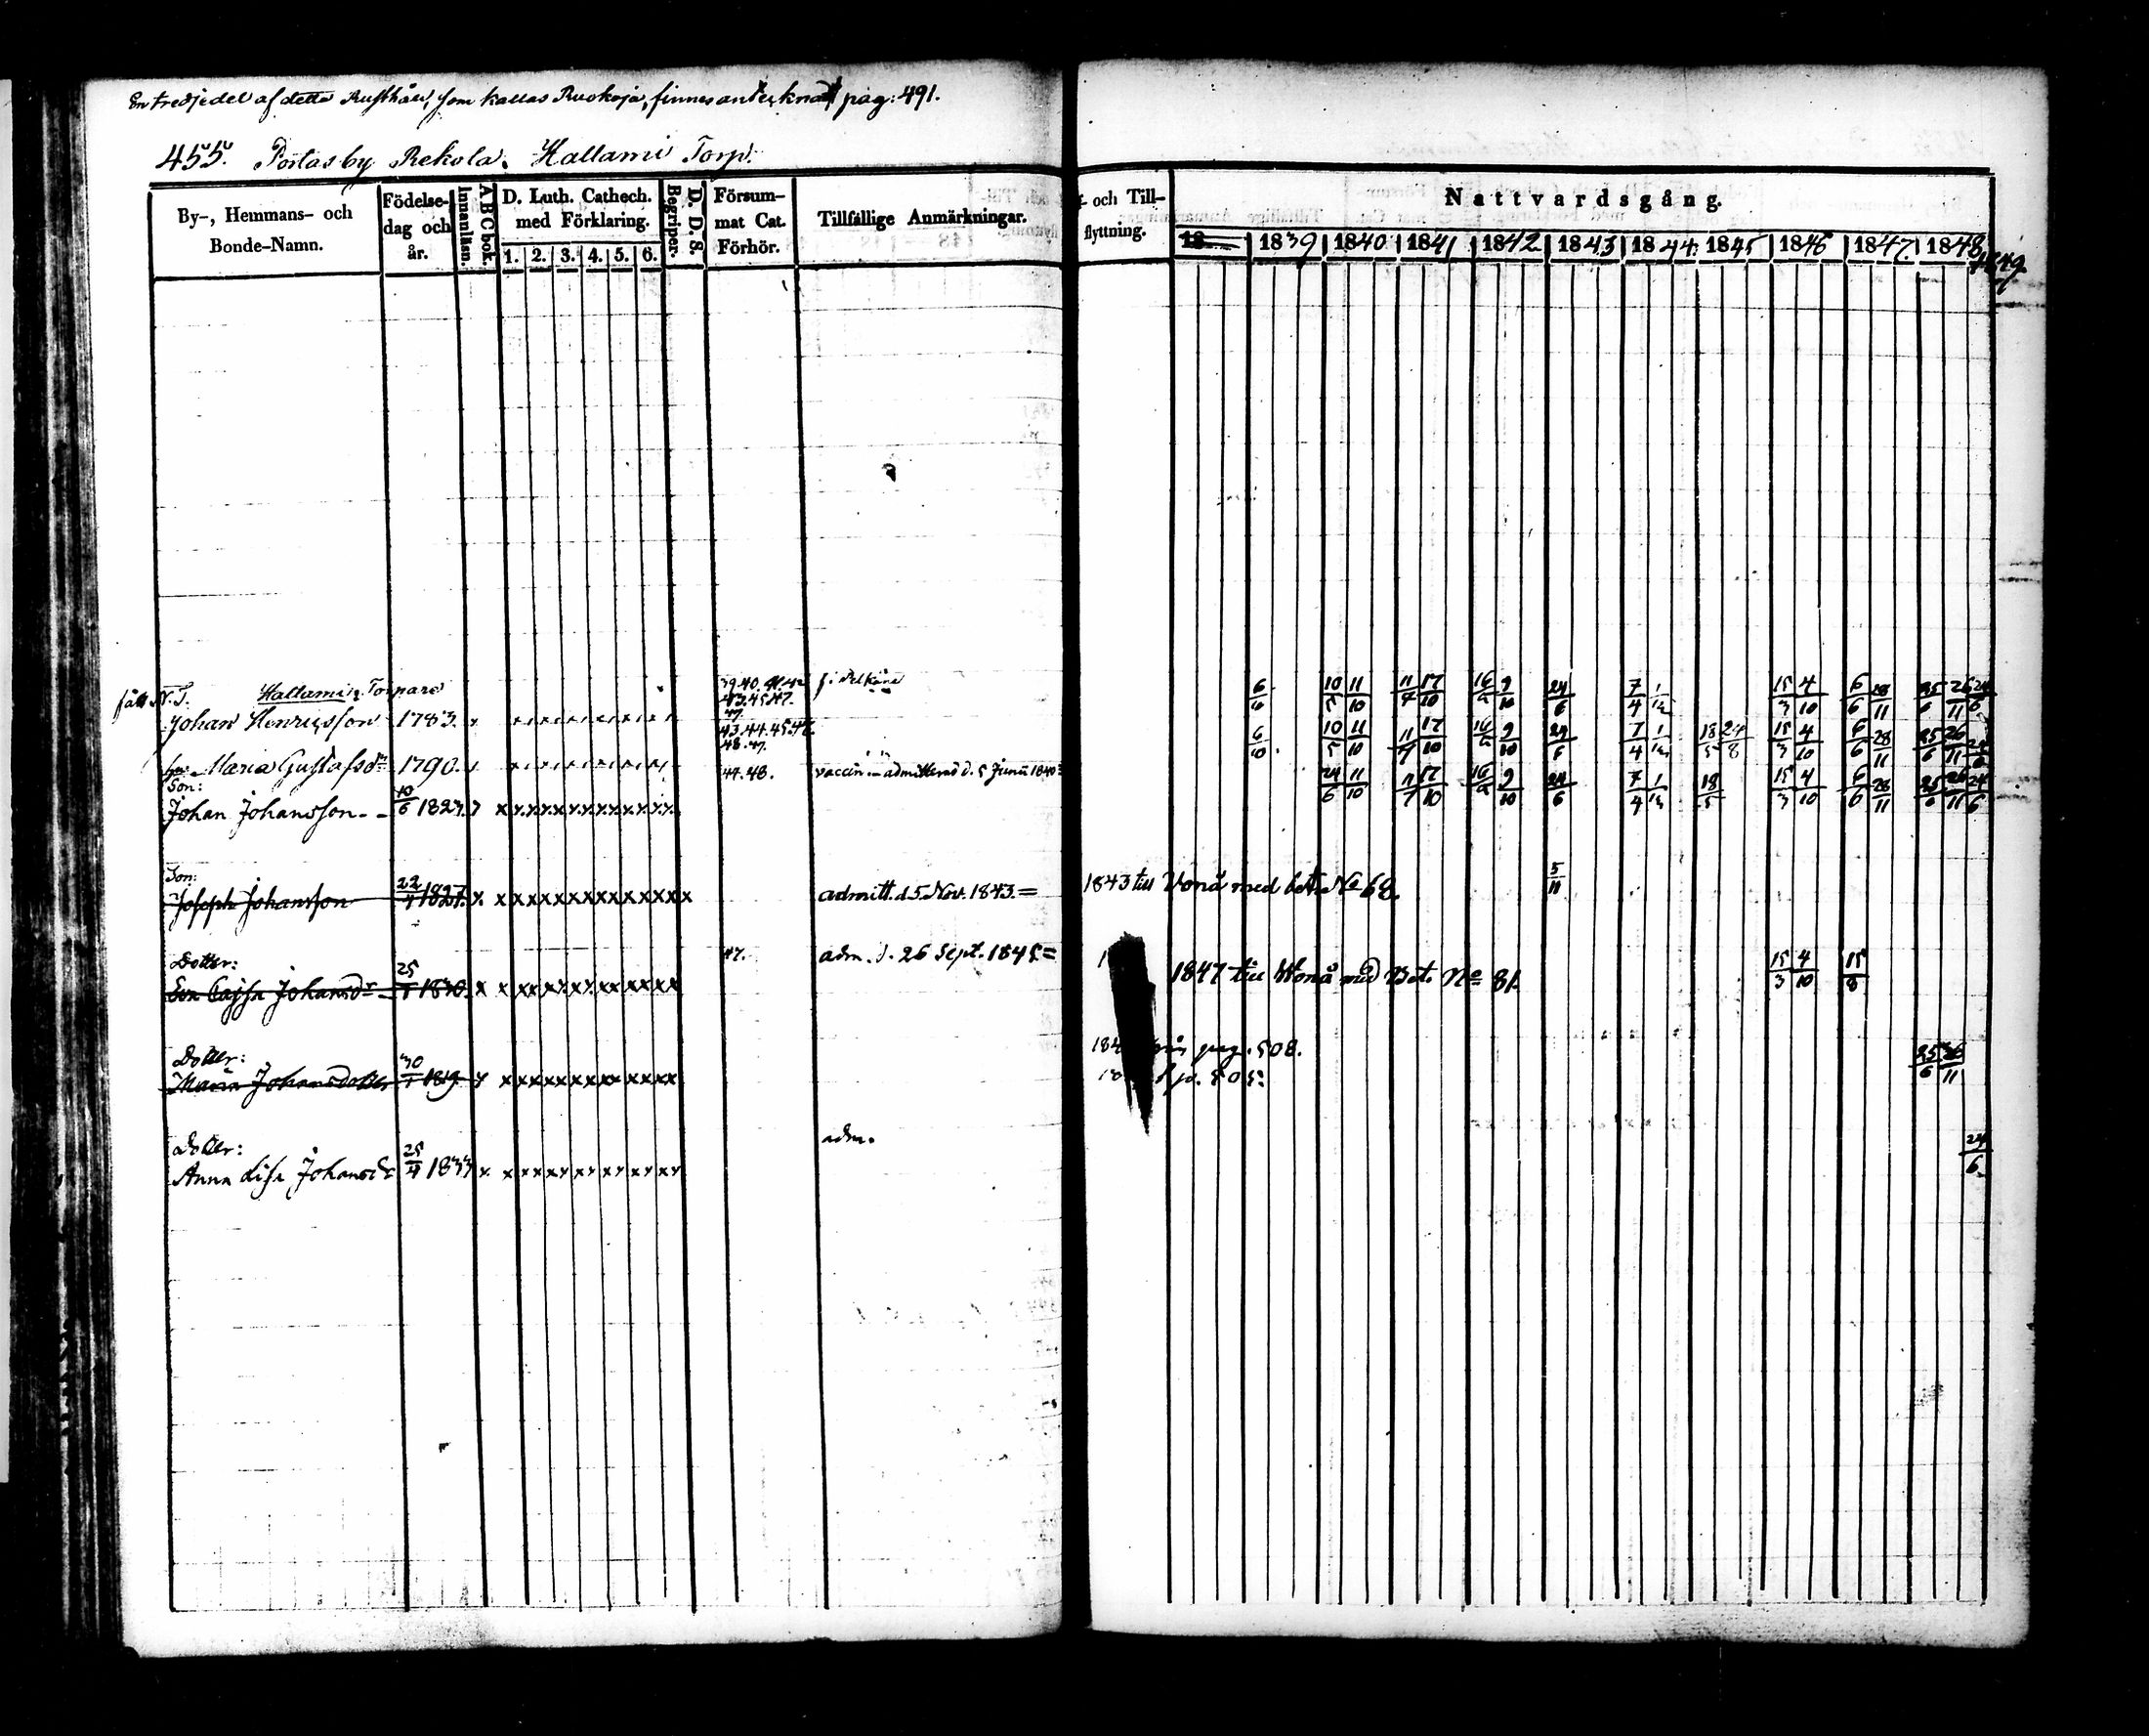 En tredjedel af detta Rusthåll, som kallas Ruokoja, finnes antecknadt pag: 491.
455. Portas by Rekola. Hallami Torp.
By-, Hemmans- och Bonde-Namn.
Födelse-dag och år.
Innanläsn.
A B C bok.
D. Luth. Cathech. med Förklaring.
1. 2. 3. 4. 5. 6.
Begriper.
D. D. S.
Försum-mat Cat. Förhör.
Tillfällige Anmärkningar.
och Till-flyttning.
Nattvardsgång.
18 1839 1840 1841 1842 1843 1844 1845 1846 1847 1848 1849
Hallami, Torpare 39.40.41.42 f. i Pelkäne
N.T. 43.45.47.
Johan Henricsson 1783. 6/10 10/5 11/10 11/7 17/10 16/ 9/10 24/6 7/4 1/12 15/3 4/10 6/6 28/11 25/6 26/11 24/6
43.44.45.47.
48.47.
Maria Gustafsdr 1790. 6/10 10/5 11/10 11/7 17/10 16/ 9/10 24/6 7/4 1/12 18/5 24/8 15/3 4/10 6/6 28/11 25/6 26/11 24/6
Son: 44.48. vaccin admitterad d. 5 Junii 1840
Johan Johansson 10/6 1823. 24/6 11/10 11/7 17/10 16/ 9/10 24/6 7/4 1/12 18/5 15/3 4/10 6/6 28/11 25/6 26/11 24/6
Son:
Joseph Johansson 22/4 1827. admitt. d 5. Nov. 1843. = 1843 till Vonå med bet. No 68. 5/11
Dotter: 47. adm. d. 26 Sept. 1845 =
Eva Cajsa Johansdr 25/1 1830. 1847 till Wonå med Bet. No 81. 15/3 4/10 15/8
Dotter: pag. 508.
Maria Johansdotter 30/1 1819 25/6 26/11
Dotter: adm.
Anna Lisa Johansdr 25/4 1833 24/6